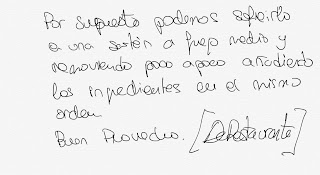 Por supuesto podemos sofreirlo
a una sartén a fuego medio y
removiendo poco apoco añadiendo
los ingredientes en el mismo
orden.
Buen Provecho. [DeRestaurante]